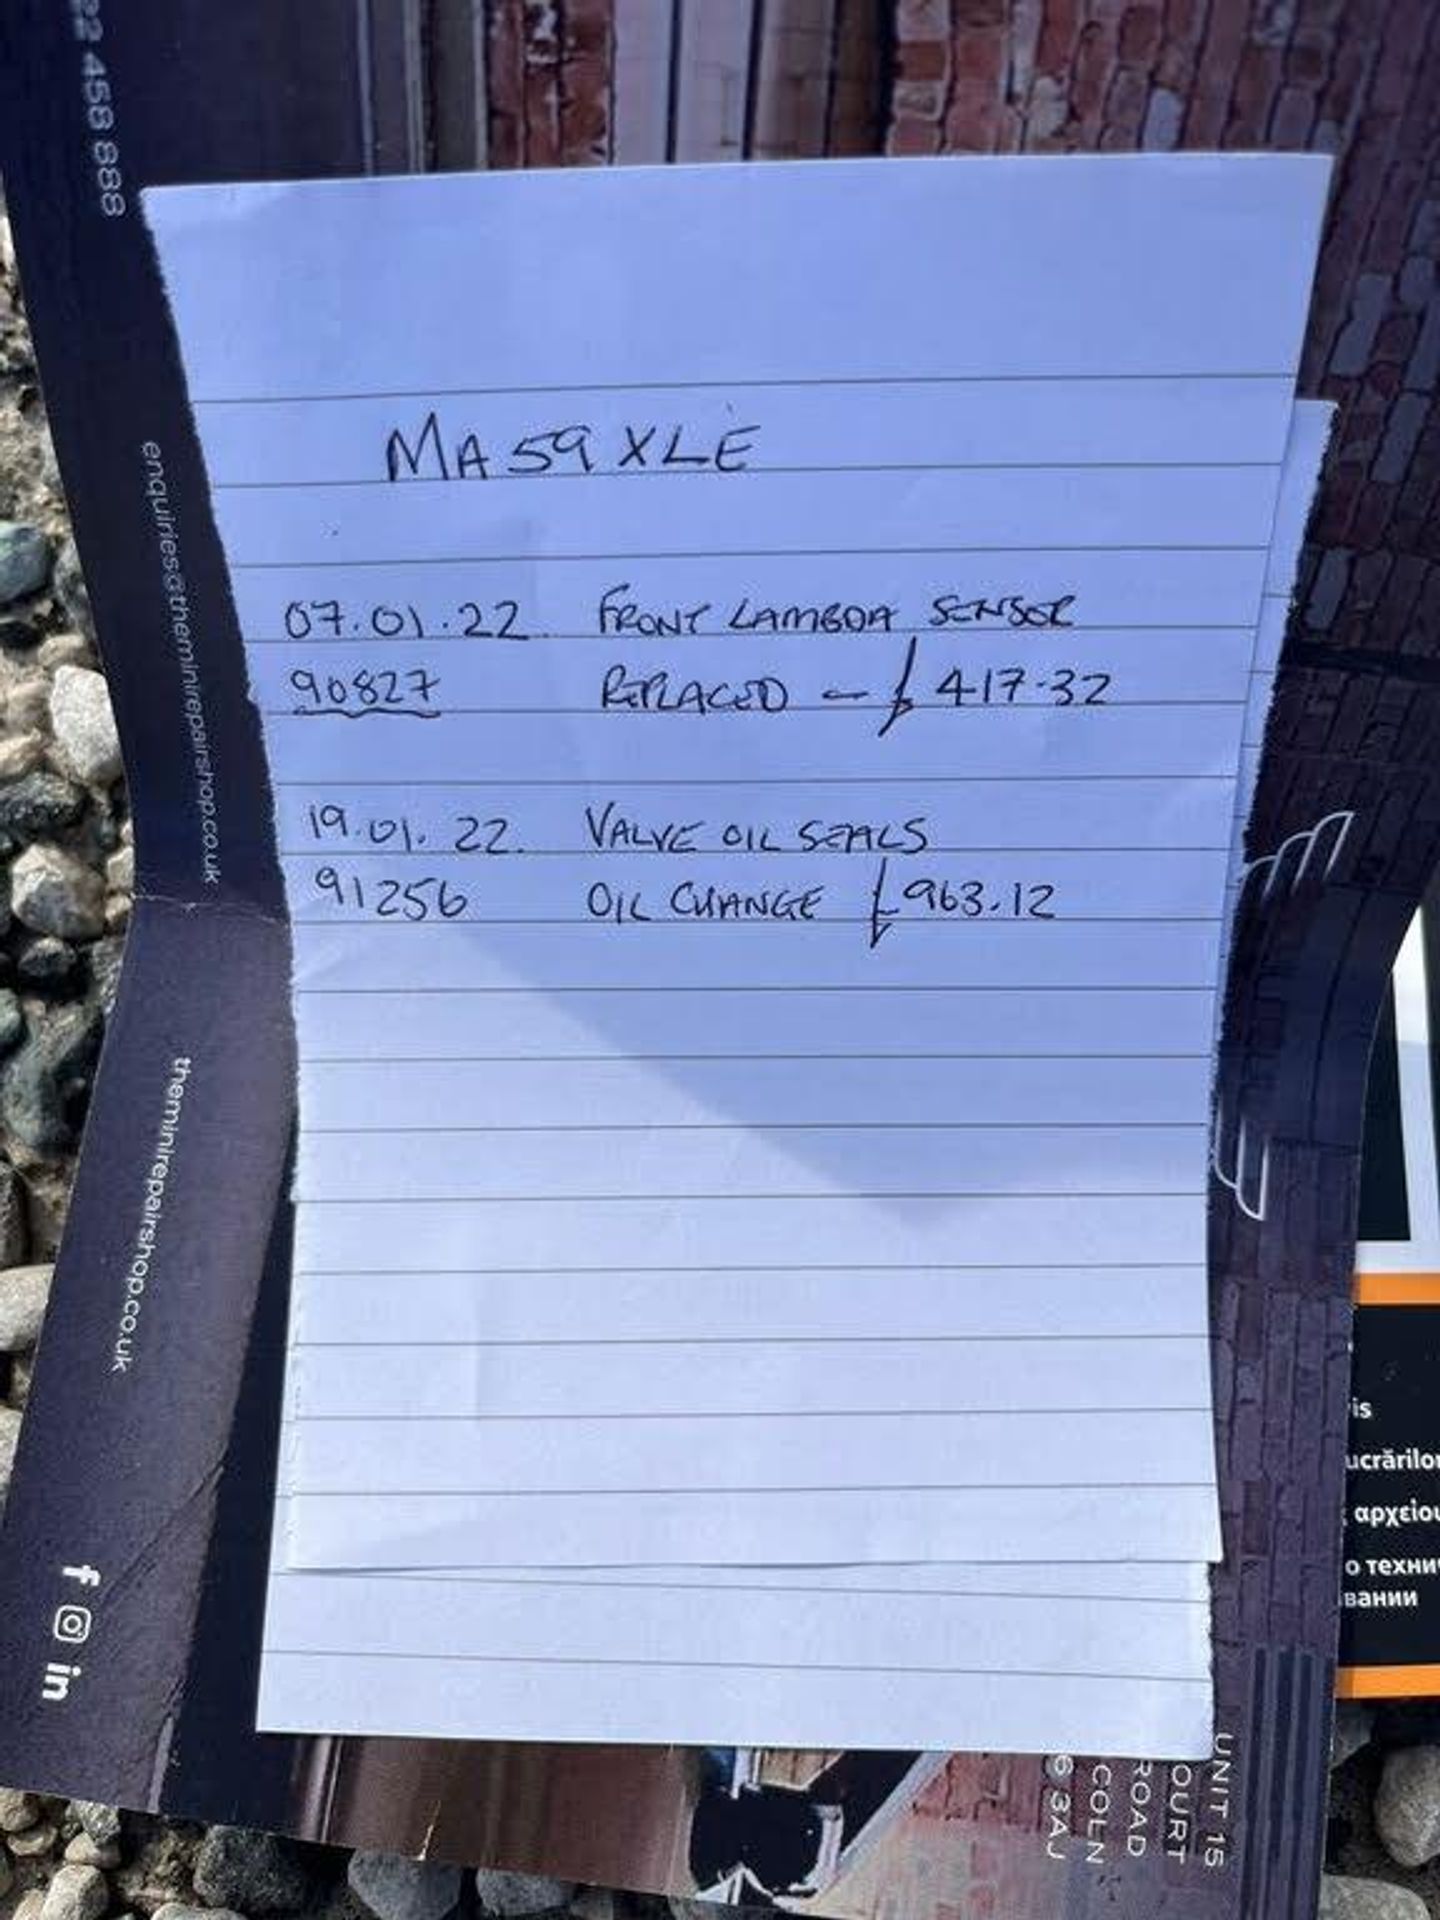 MA59 XLE
07.01.22. FRONT LAMBDA SENSOR
90827 REPLACED - £417.32
19.01.22. VALVE OIL SEALS
91256 OIL CHANGE £963.12
22 458 888
enquiries@theminirepairshop.co.uk
theminirepairshop.co.uk
f in
UNIT 15
OURT
ROAD
COLN
6 3AJ
is
ucrărilor
αρχείου
о техни
вании